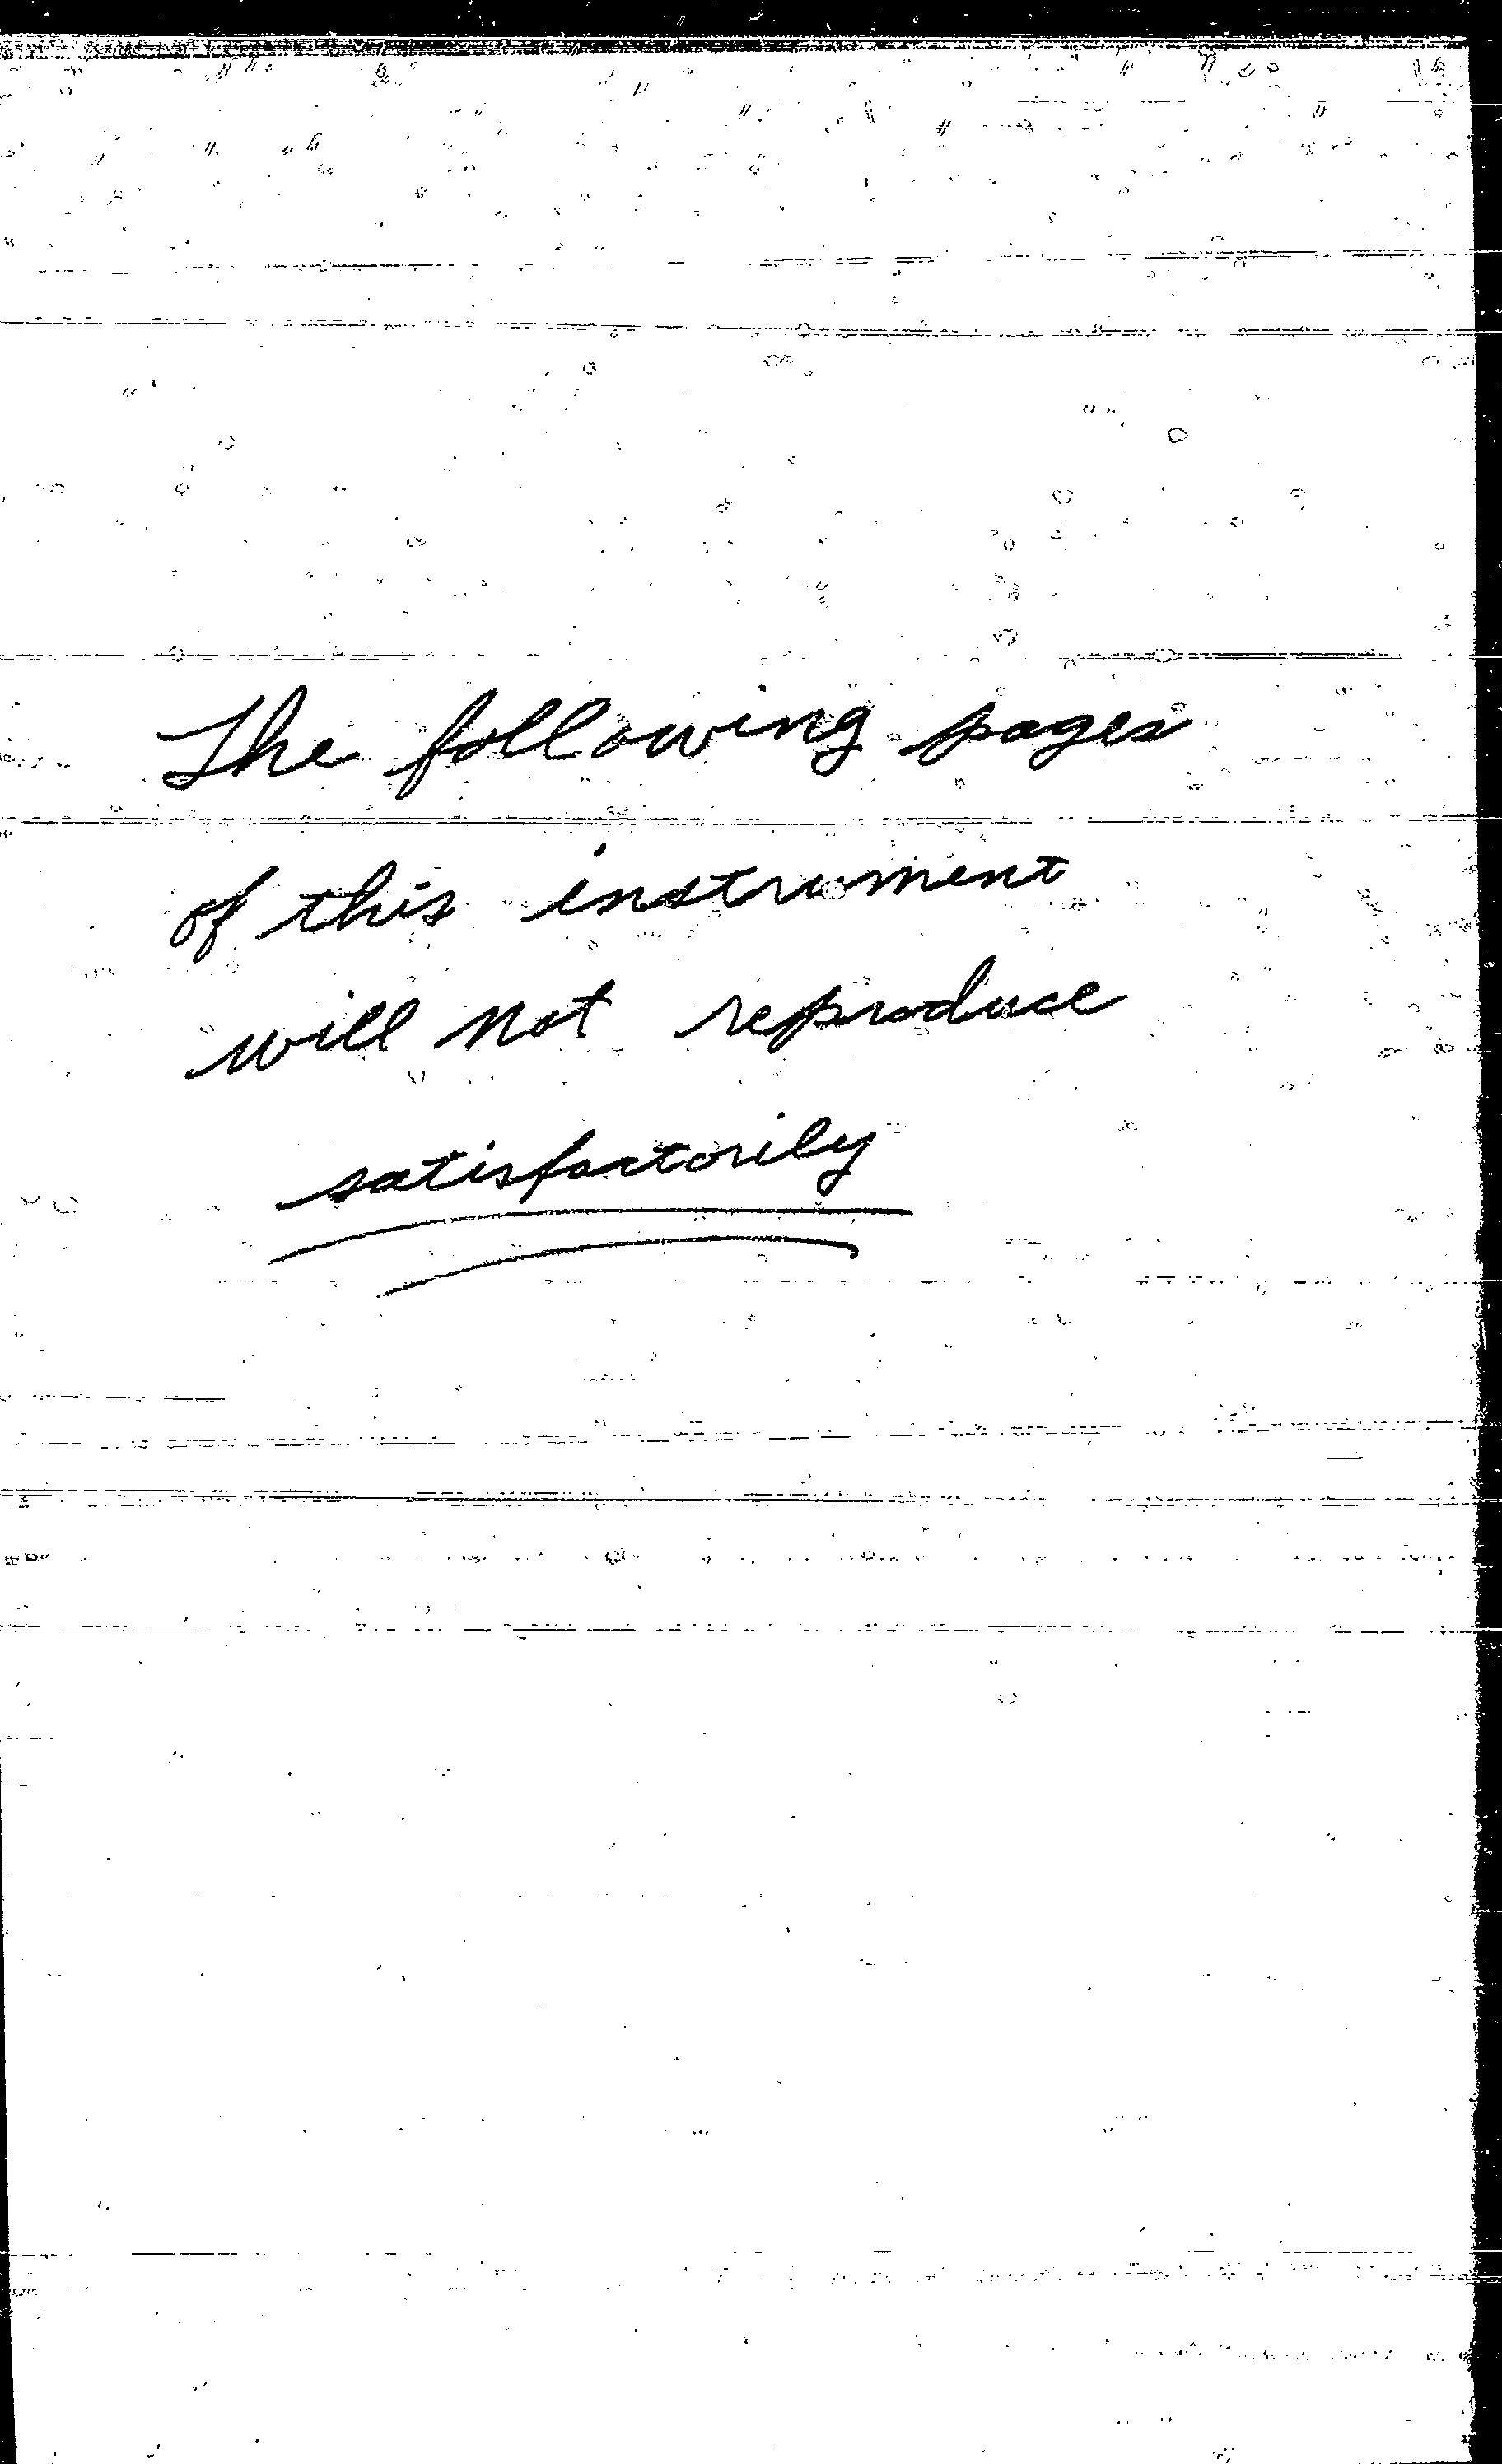 The following pages
of this instrument
will not reproduce
satisfactorily